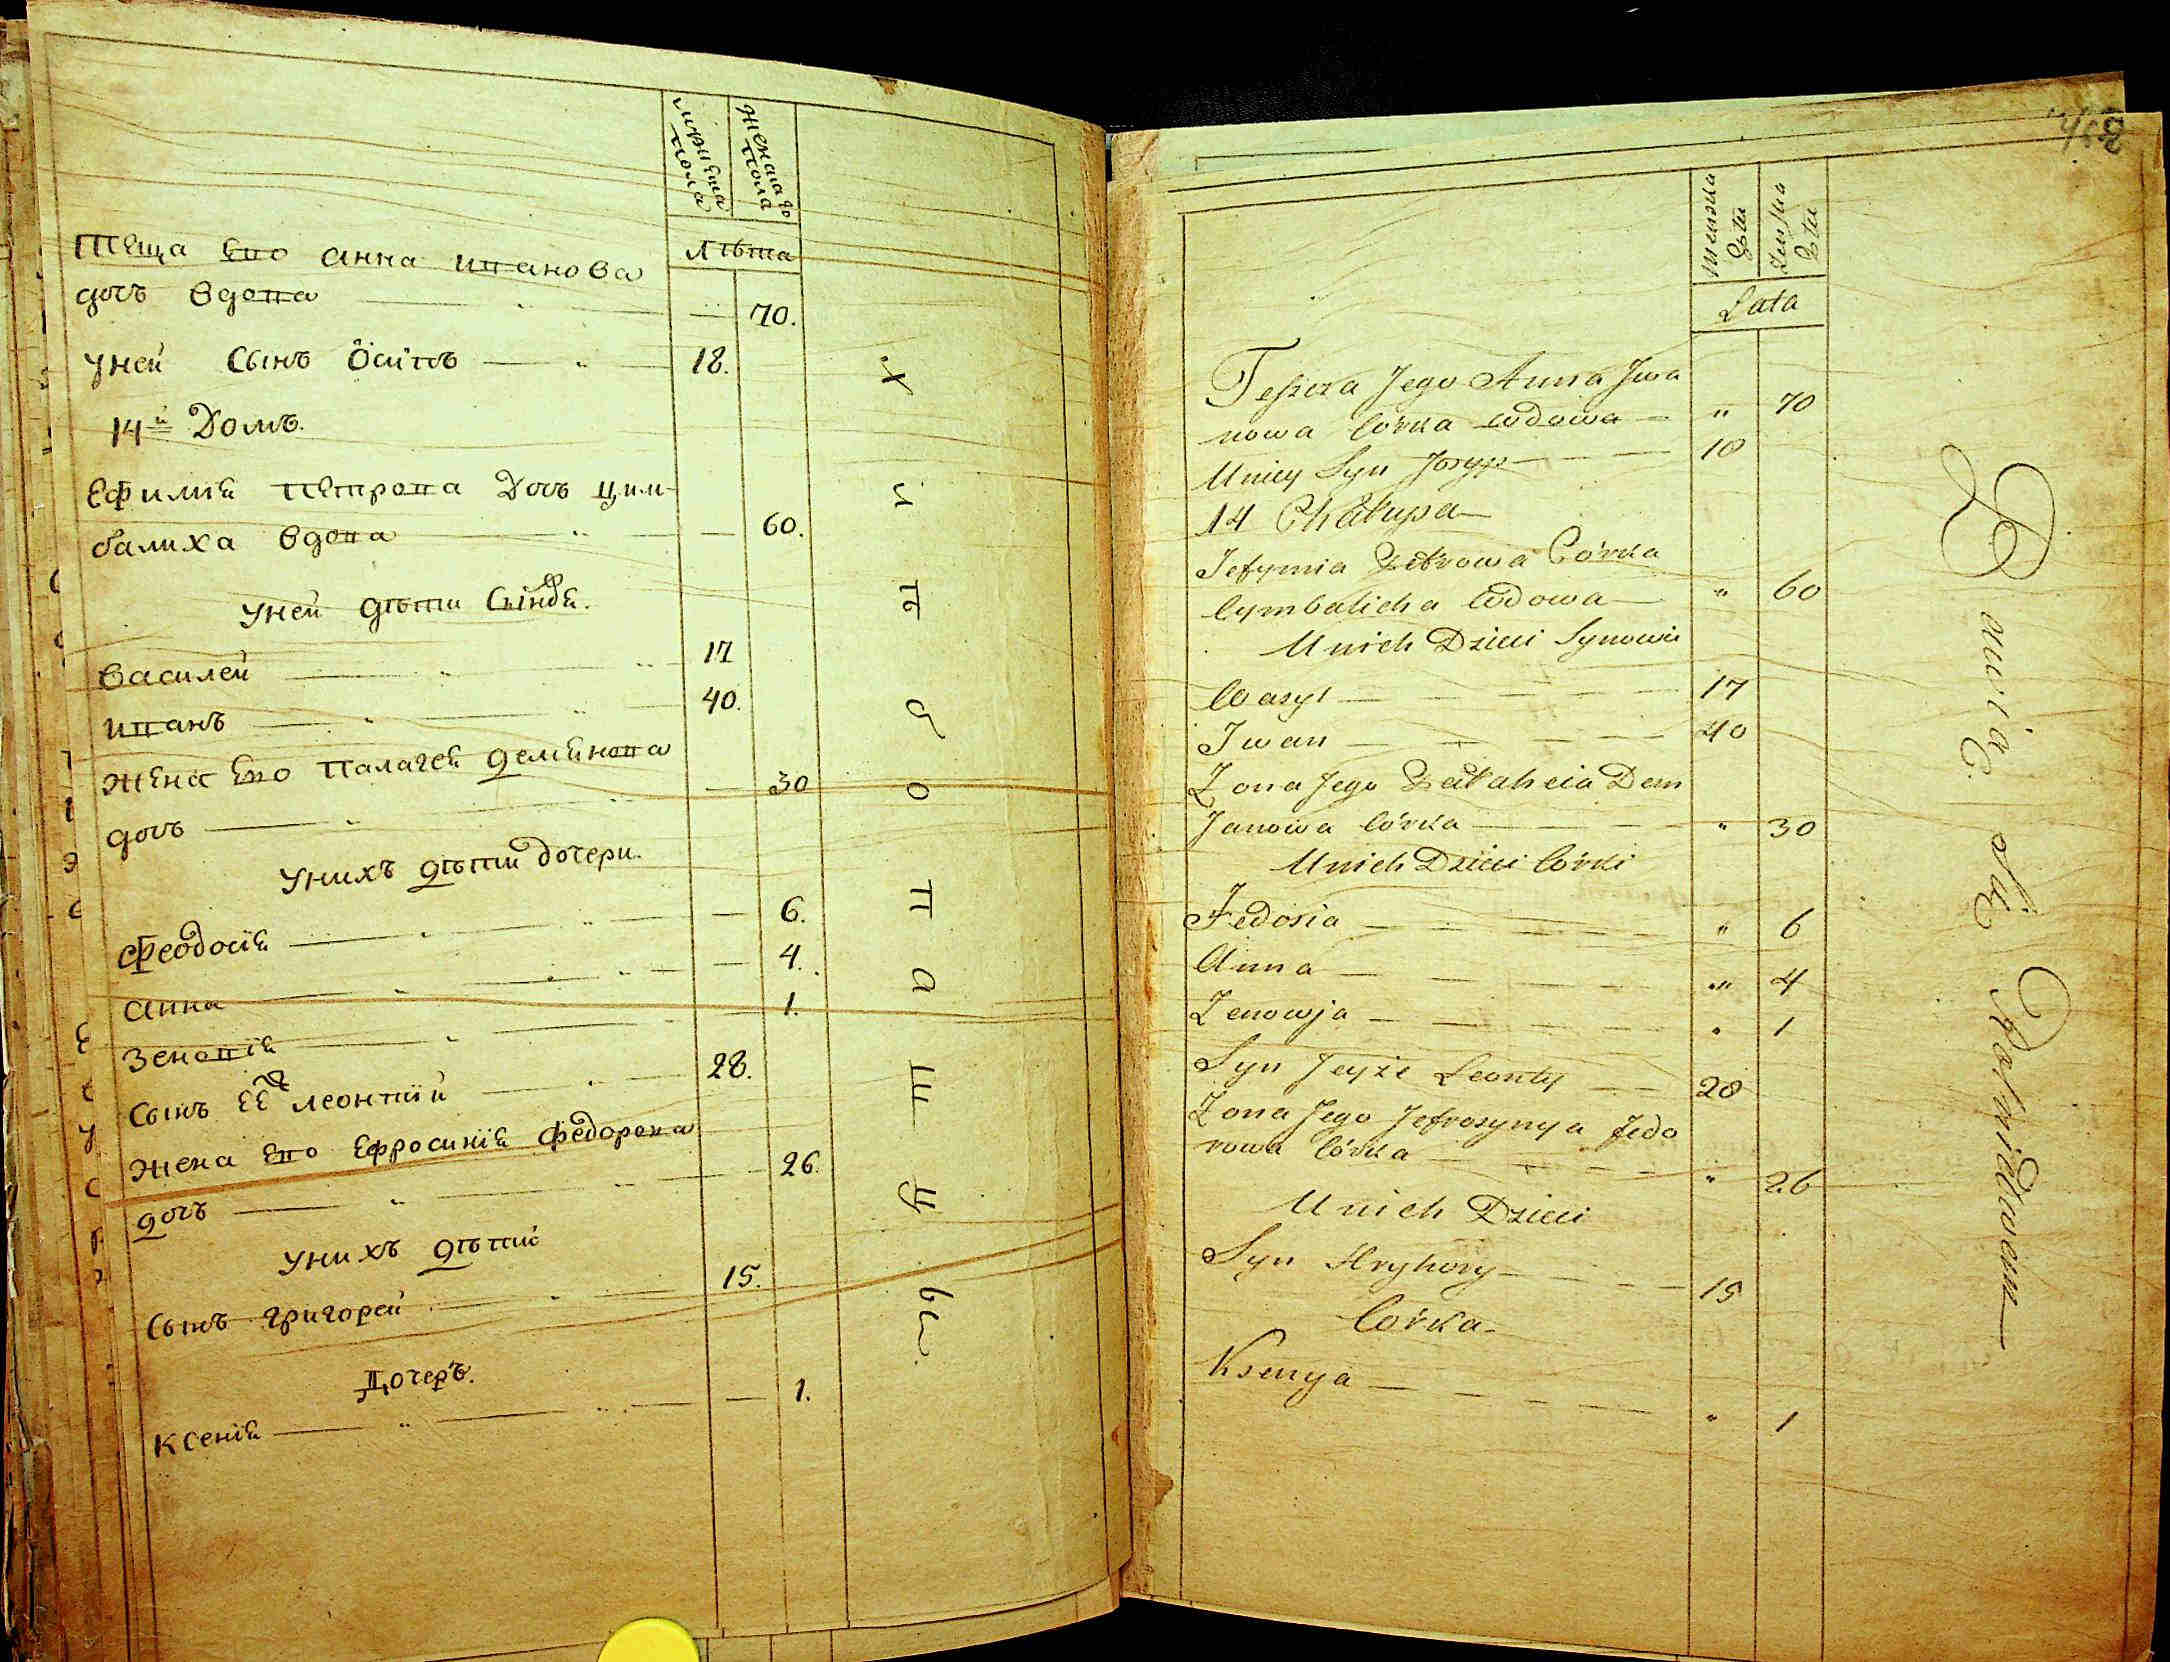 мужеска пола
женска го пола
Лѣта
Теща Его анна иванова
дочь вдова 70.
У ней Сынъ Осипъ 18.
14й Домъ.
Ефимиѣ Петрова Дочь цим-
балиха вдова — 60.
У ней дѣти Сыновѣ.
Василей 17
Иванъ 40.
Жена Его Палагеѣ деминова
дочь — 30
У нихъ дѣти дочери.
Феодосіѣ — 6.
Анна — 4.
Зеновіѣ 1.
Сынъ ЕЕ Леонтий 28.
Жена Его Ефросиніѣ Федорова
дочь — 26.
У нихъ дѣти
Сынъ Григорей 15.
Дочеръ.
Ксеніѣ — 1.
х и в о п а ш ц ы
Menska Płeu
Zenska Płeu
Lata
Teszcza Jego Anna Jwa
nowa Córka wdowa — " 70
Uniey Syn Josyp — 18
14 Chałupa
Jefymia Petrowa Córka
Cymbalicha wdowa — " 60
Unich Dzieci Synowie
Wasyl — 17
Iwan — 40
Zona Jego Pałaheia Dem
Janowa Córka — " 30
Unich Dzieci Córki
Fedosia — " 6
Anna — " 4
Zenowja — " 1
Syn Jeyże Leonty — 28
Zona Jego Jefrosynya Fedo
rowa Córka — " 26
Unich Dzieci
Syn Hryhory — 15
Córka
Ksenya — " 1
Bawią Się Rolnictwem